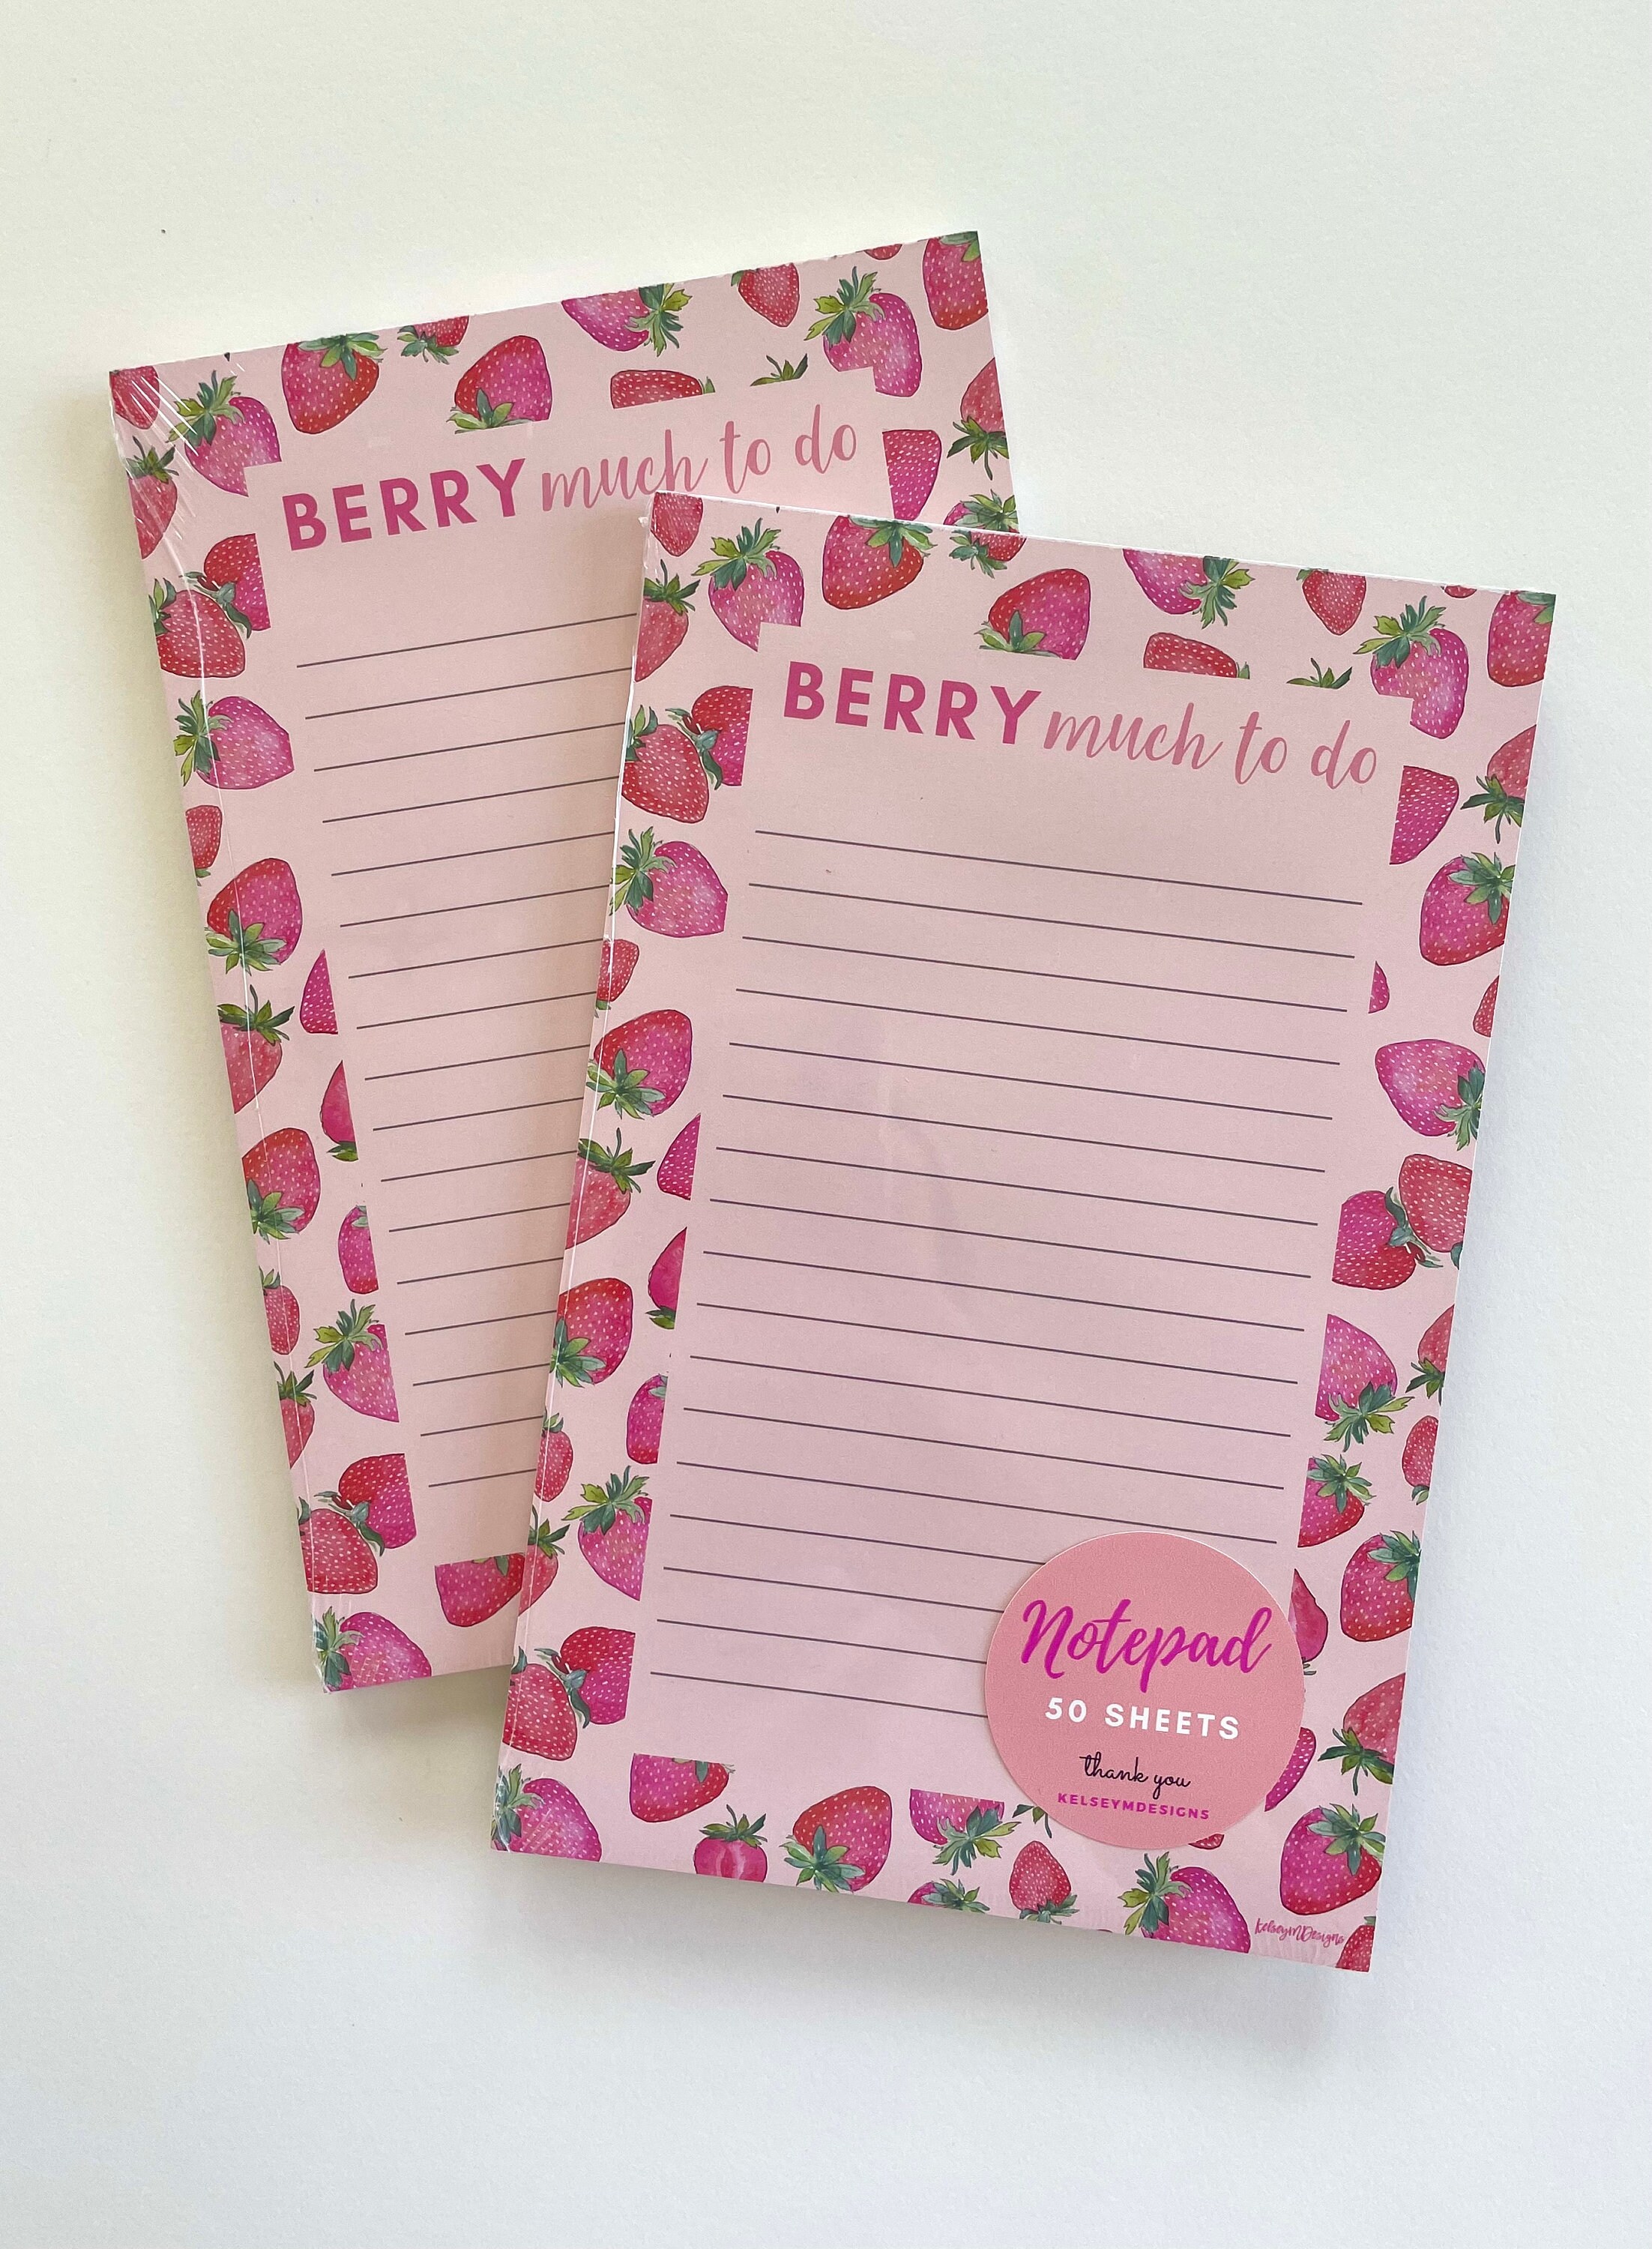 BERRY much to do
BERRY much to do
Notepad
50 SHEETS
thank you
KELSEYMDESIGNS
kelseymDesigns